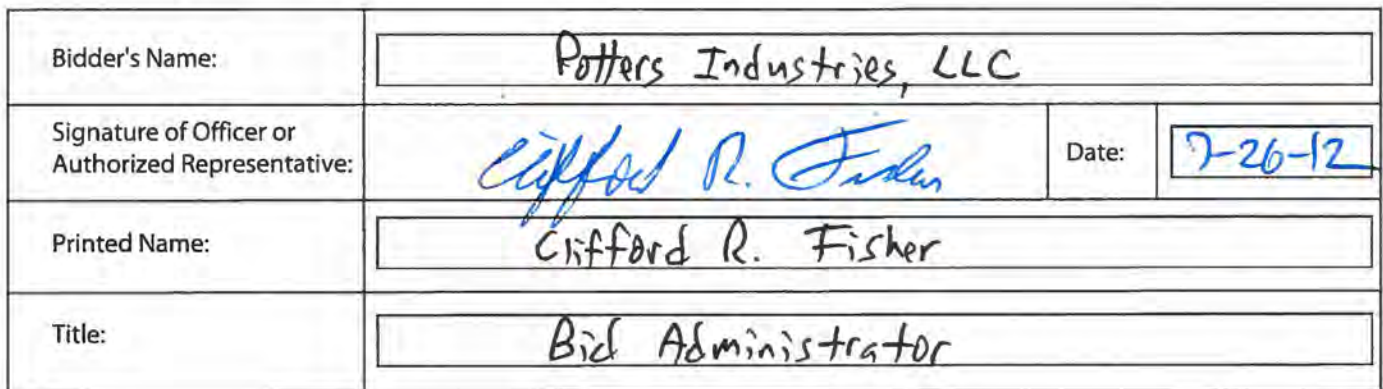 Bidder's Name: Potters Industries, LLC
Signature of Officer or
Authorized Representative: Clifford R. Fisher Date: 7-26-12
Printed Name: Clifford R. Fisher
Title: Bid Administrator